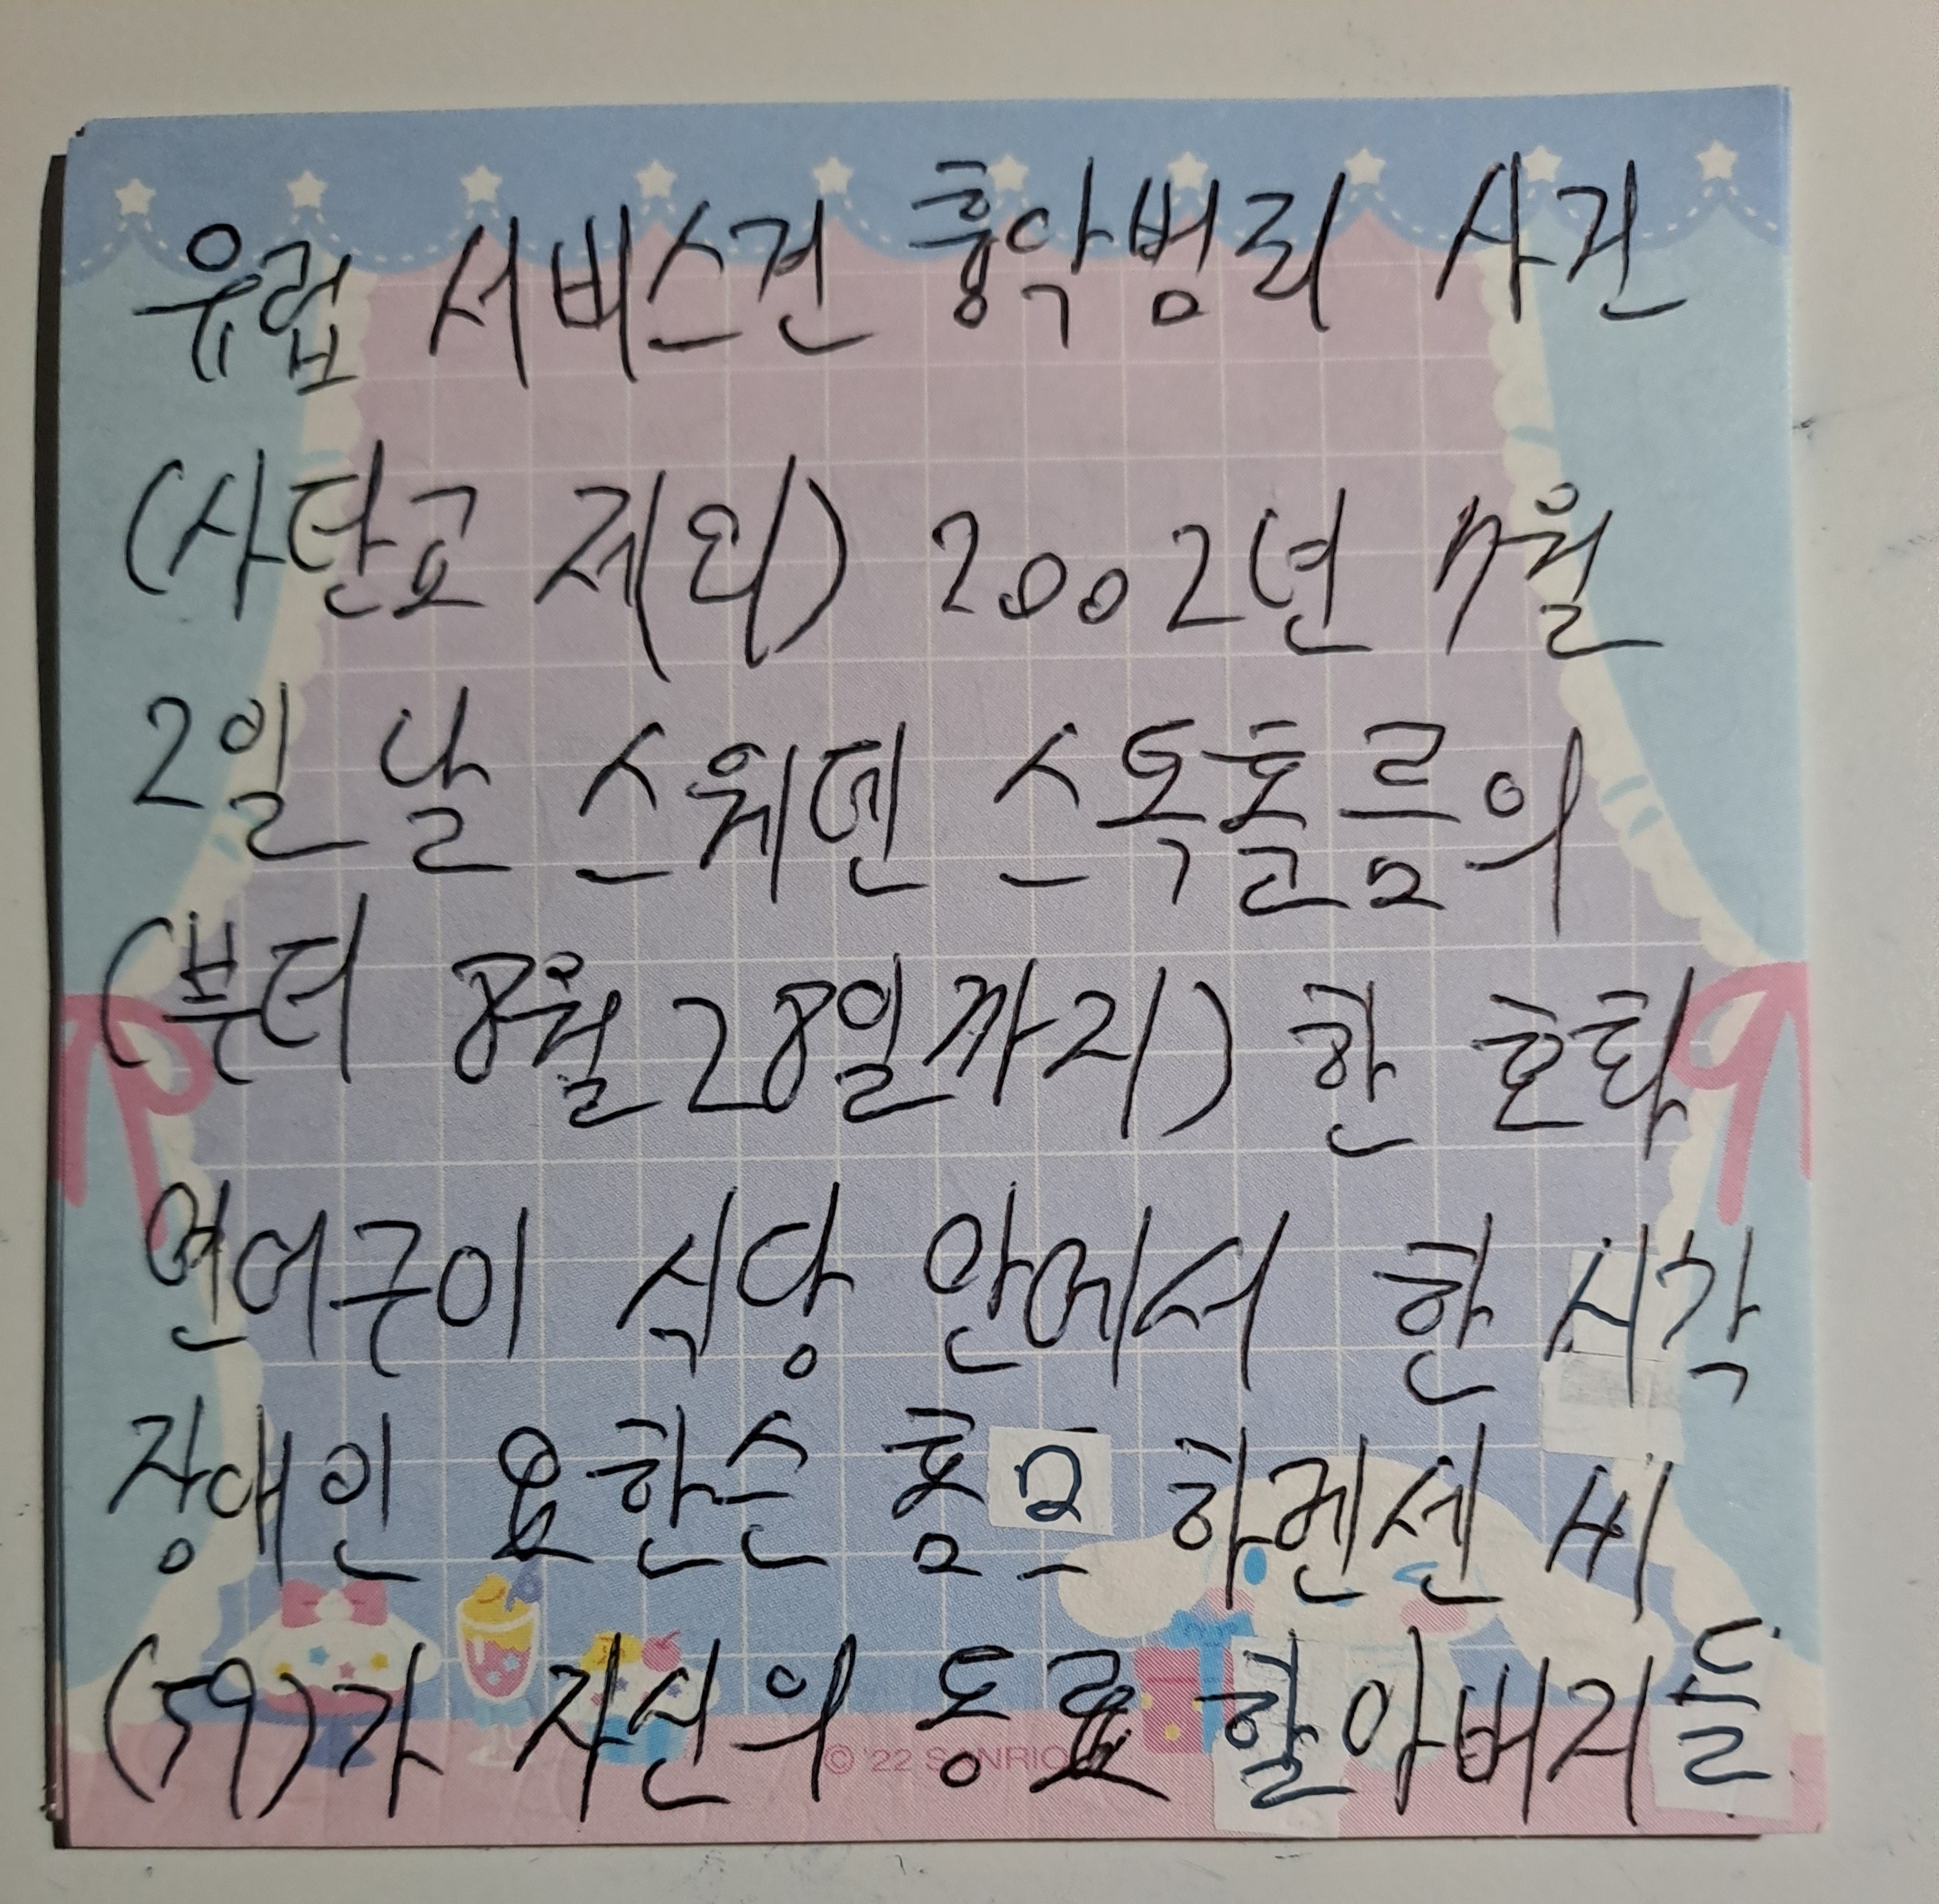 유럽 서비스견 흉악범죄 사건
(사탄교 제외) 2002년 7월
2일 날 스웨덴 스톡홀름의
(부터 8월 28일까지) 한 호화
연어구이 식당 안에서 한 시각
장애인 요한슨 홈으 하겐센 씨
(59)가 자신의 동료 할아버지들
© '22 SANRIO